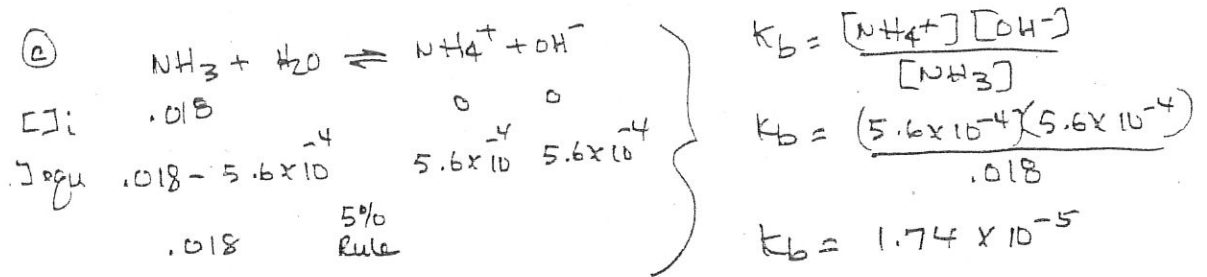 ⓒ NH3 + H2O ⇌ NH4⁺ + OH⁻
[]i .018 0 0
]equ .018 - 5.6x10⁻⁴ 5.6x10⁻⁴ 5.6x10⁻⁴
.018 5% Rule
Kb = [NH4+][OH-] / [NH3]
Kb = (5.6x10⁻⁴)(5.6x10⁻⁴) / .018
Kb = 1.74 x 10⁻⁵